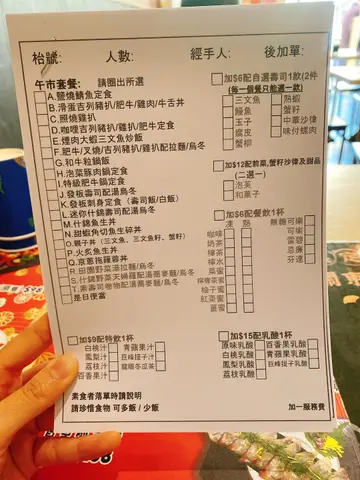 枱號: 人數: 經手人: 後加單:
午市套餐: 請圈出所選
A.鹽燒鯖魚定食
B.滑蛋吉列豬扒/肥牛/雞肉/牛舌丼
C.照燒雞扒
D.咖哩吉列豬扒/雞扒/肥牛定食
E.煙肉大蝦三文魚炒飯
F.肥牛/叉燒/吉列豬扒/雞扒配拉麵/烏冬
G.和牛粒鍋飯
H.泡菜豚肉鍋定食
I.特級肥牛鍋定食
J.發板壽司配湯烏冬
K.發板刺身定食(壽司飯/白飯)
L.迷你什錦壽司配湯烏冬
M.什錦魚生丼
N.甜蝦角切魚生碎丼
O.親子丼(三文魚、三文魚籽、蟹籽)
P.火炙魚生丼
Q.京蔥拖羅蓉丼
R.田園野菜湯拉麵/烏冬
S.什錦野菜天婦羅配湯蕎麥麵/烏冬
T.素壽司卷物配湯蕎麥麵/烏冬
是日便當
加$6配自選壽司1款(2件
(每一個餐只能選一款)
三文魚 熟蝦
鰻魚 蟹籽
玉子 中華沙律
腐皮 味付螺肉
蟹柳
加$12配前菜,蟹籽沙律及甜品
(二選一)
泡芙
和菓子
加$6配餐飲1杯
凍 熱 無糖可樂
咖啡 可樂
奶茶 雪碧
檸茶 忌廉
檸水 芬達
菜蜜
檸檬菜蜜
柚子蜜
紅棗蜜
薑蜜
加$9配特飲1杯
白桃汁 青蘋果汁
鳳梨汁 巨峰提子汁
荔枝汁 龍眼冬瓜茶
百香果汁
加$15配乳酸1杯
原味乳酸 百香果乳酸
白桃乳酸 青蘋果乳酸
鳳梨乳酸 巨峰提子乳酸
荔枝乳酸
素食者落單時請說明
請珍惜食物 可多飯/少飯
加一服務費